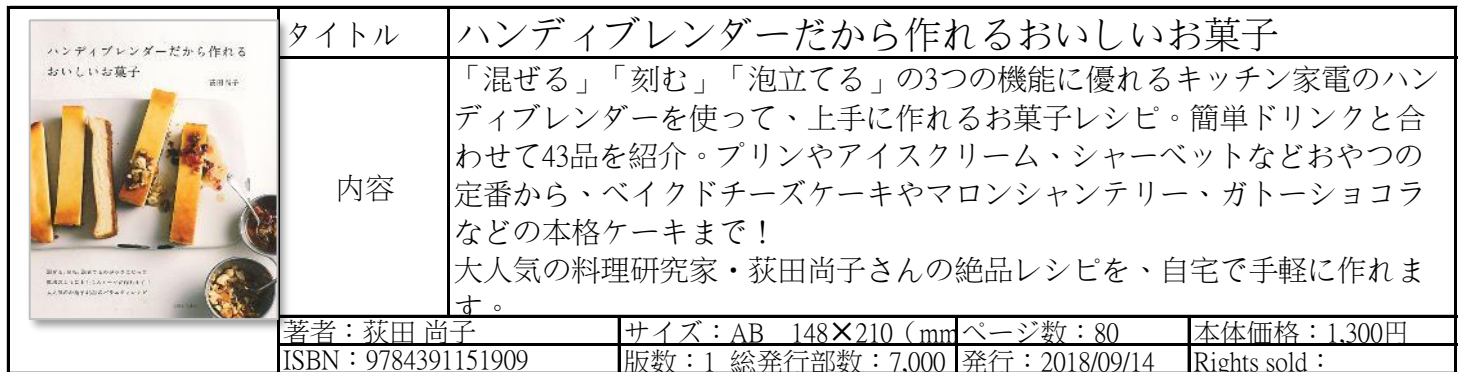 ハンディブレンダーだから作れる
おいしいお菓子
荻田 尚子
タイトル
ハンディブレンダーだから作れるおいしいお菓子
内容
「混ぜる」「刻む」「泡立てる」の3つの機能に優れるキッチン家電のハン
ディブレンダーを使って、上手に作れるお菓子レシピ。簡単ドリンクと合
わせて43品を紹介。プリンやアイスクリーム、シャーベットなどおやつの
定番から、ベイクドチーズケーキやマロンシャンテリー、ガトーショコラ
などの本格ケーキまで！
大人気の料理研究家・荻田尚子さんの絶品レシピを、自宅で手軽に作れま
す。
著者：荻田 尚子
サイズ：AB　148✕210（mm
ページ数：80
本体価格：1,300円
ISBN：9784391151909
版数：1 総発行部数：7,000
発行：2018/09/14
Rights sold：